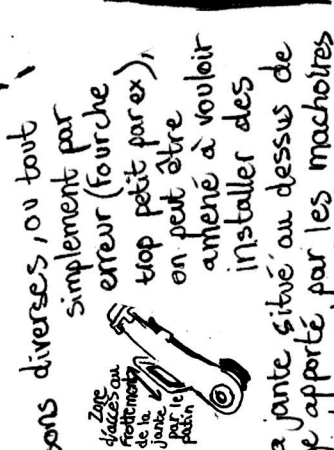 sons diverses, ou tout
simplement par
erreur (Fourche
trop petit par ex),
on peut être
amené à vouloir
installer des
Zone
d'accès au
Frottement
de la
jante
par le
patin
a jante situé au dessus de
e apporté par les machoires